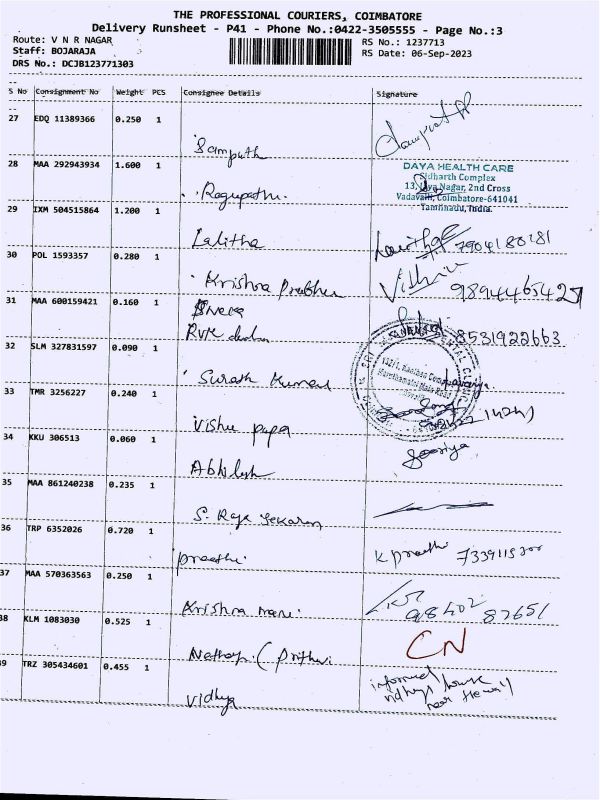 THE PROFESSIONAL COURIERS, COIMBATORE
Delivery Runsheet - P41 - Phone No.:0422-3505555 - Page No.:3
Route: V N R NAGAR
RS No.: 1237713
Staff: BOJARAJA
RS Date: 06-Sep-2023
DRS No.: DCJB123771303
S No Consignment No Weight PCS Consignee Details Signature
27 EDQ 11389366 0.250 1
Sampath
28 MAA 292943934 1.600 1
DAYA HEALTH CARE
Sidharth Complex
13, Nagar, 2nd Cross
Vadavalli, Coimbatore-641041
Tamilnadu, India.
Ragupathi.
29 IXM 504515864 1.200 1
Lalitha
7904180281
30 POL 1593357 0.280 1
Krishna Prabhu
9894465427
31 MAA 600159421 0.160 1
RVR
8531922663
32 SLM 327831597 0.090 1
Surath Kumar
33 TMR 3256227 0.240 1
Vishu papa
34 KKU 306513 0.060 1
Sooriya
Abhilesh
35 MAA 861240238 0.235 1
S. Raja Sekaran
36 TRP 6352026 0.720 1
preethi
K preethi
37 MAA 570363563 0.250 1
Krishna mani
98402 87651
38 KLM 1083030 0.525 1
CN
39 TRZ 305434601 0.455 1
informed
vidhya house
near
Vidhya